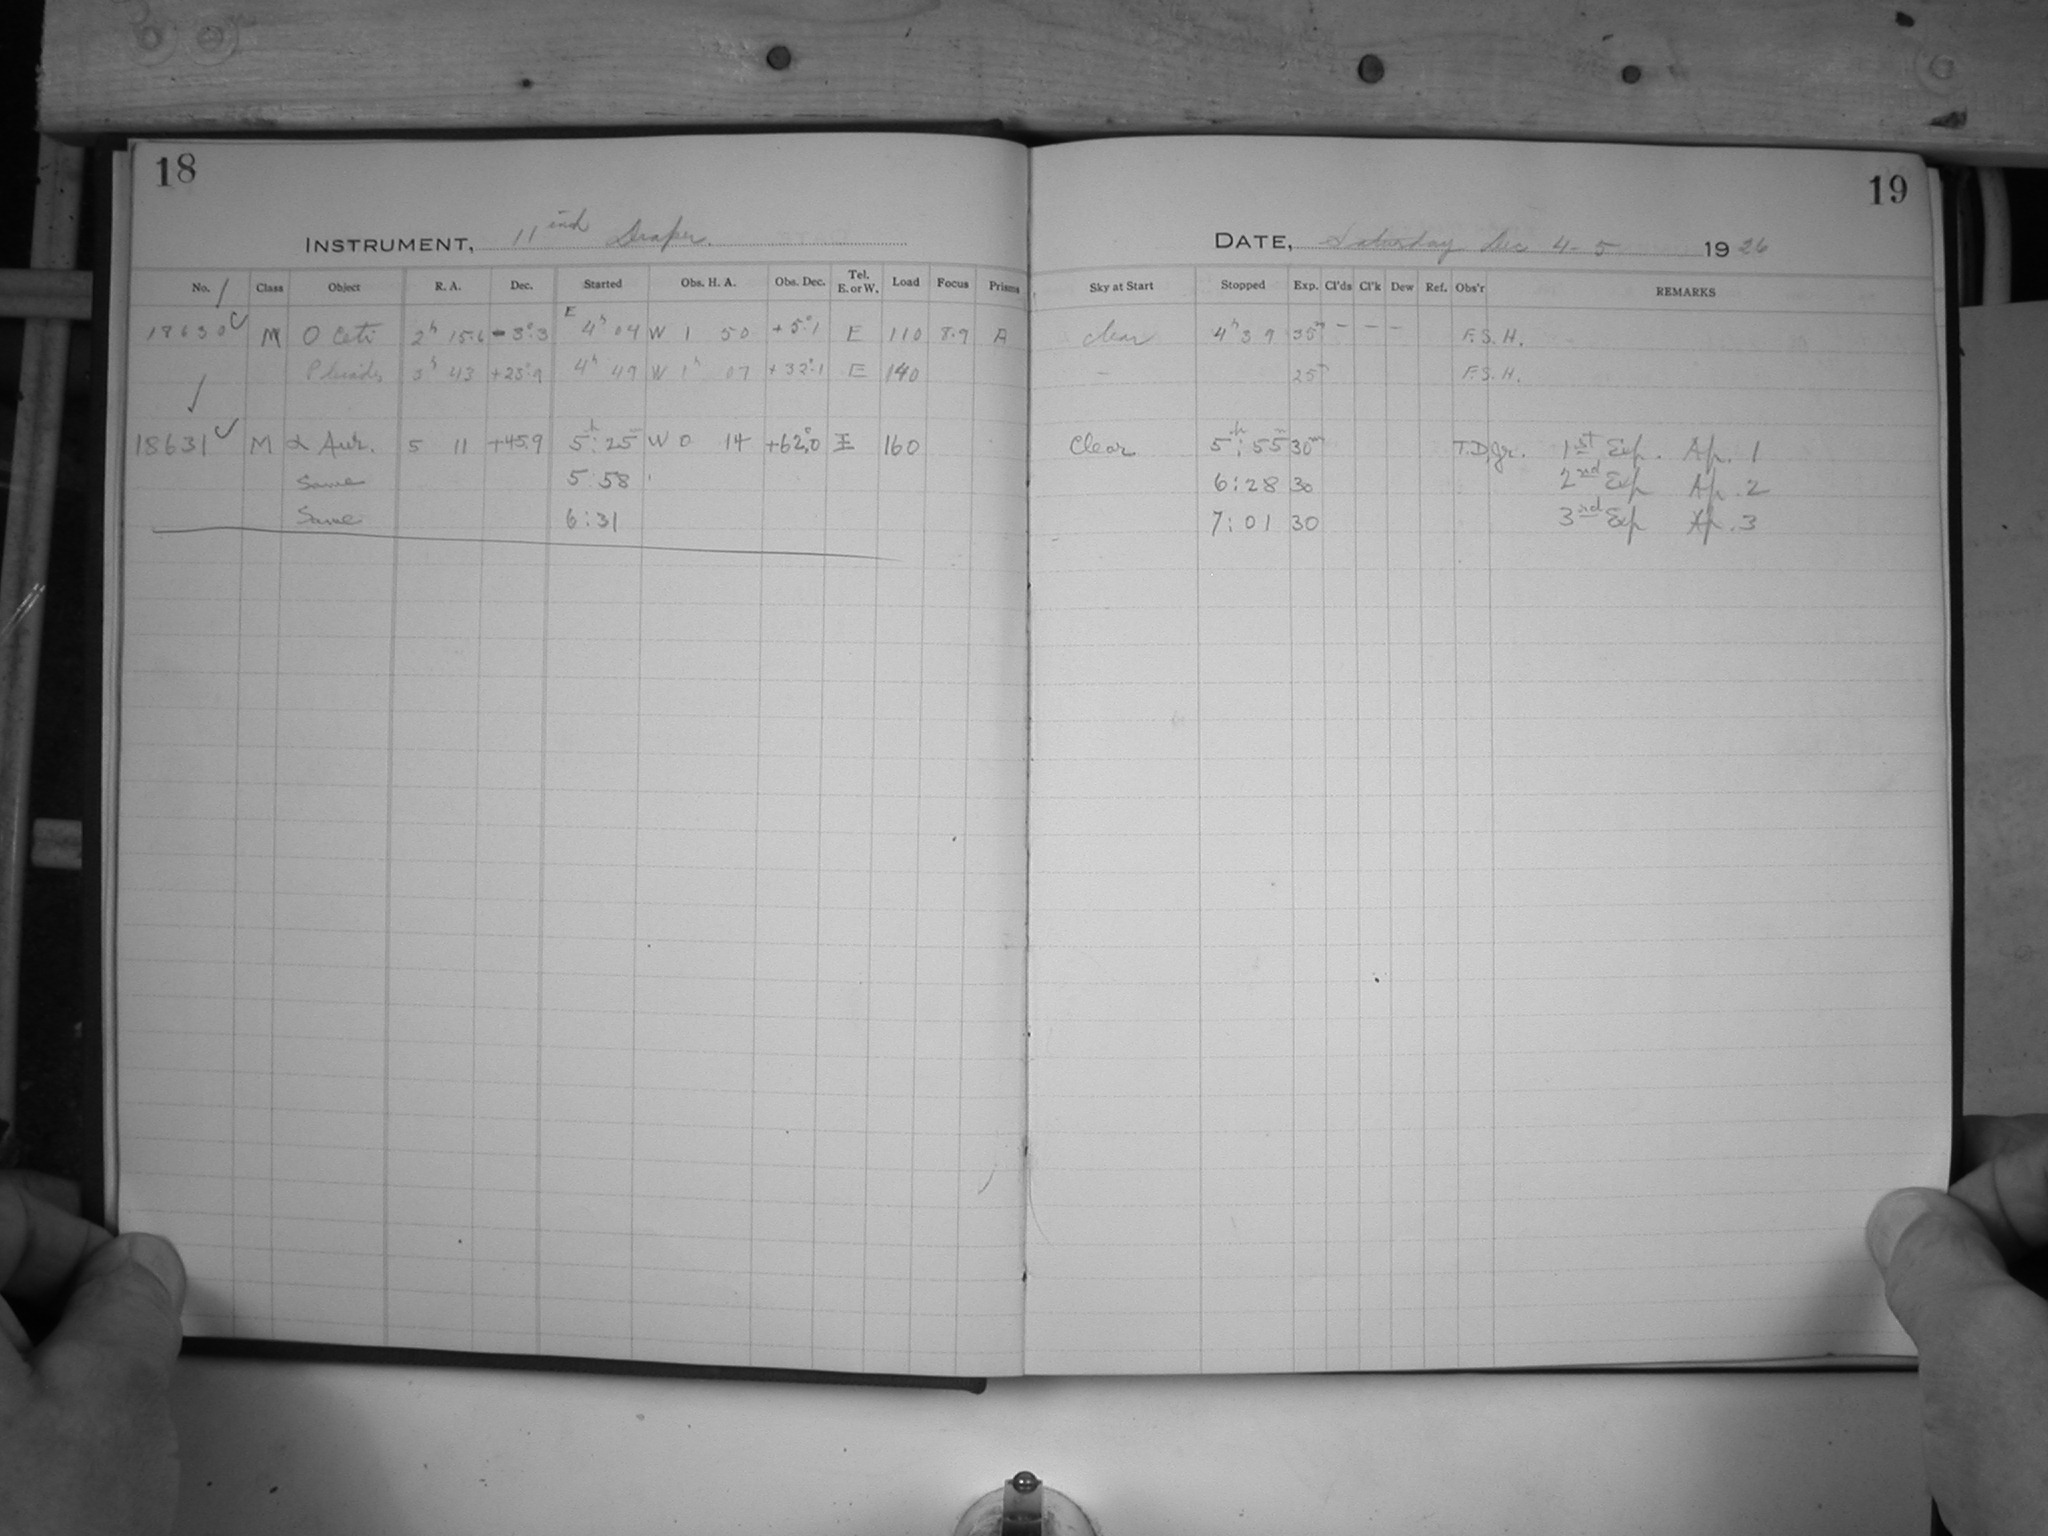 18
INSTRUMENT, 11 inch Draper.
No. Class Object R. A. Dec. Started Obs. H. A. Obs. Dec. Tel. E. or W. Load Focus Prisms
18630 M O Ceti 2h 15.6 -3°.3 E 4h 04 W 1 50 +5°.1 E 110 8.9 A
Pleiades 3h 43 +23°.9 4h 49 W 1h 07 +32°.1 E 140
18631 M α Aur. 5 11 +45.9 5h:25m W 0 14 +62°.0 E 160
Same 5:58
Same 6:31
19
DATE, Saturday Dec 4-5 1926
Sky at Start Stopped Exp. Cl'ds Cl'k Dew Ref. Obs'r REMARKS
clear 4h 39 35m - - - F.S.H.
- 25m F.S.H.
Clear 5h:55 30m T.D.Jr. 1st Exp. Ap. 1
6:28 30 2nd Exp Ap. 2
7:01 30 3rd Exp Ap. 3